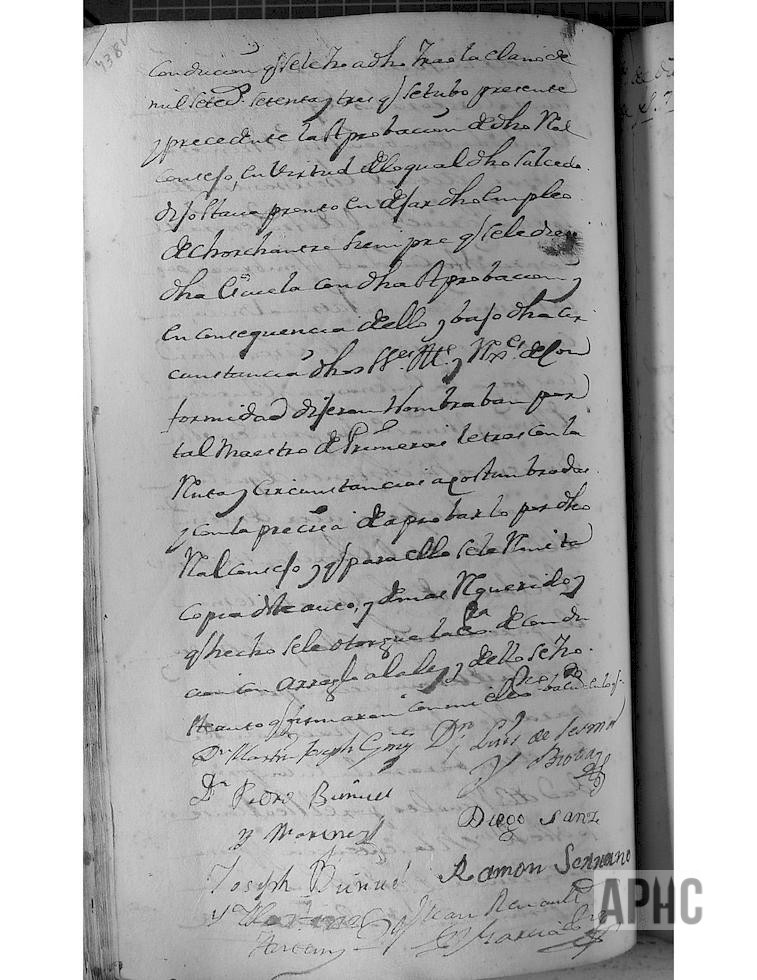 438
conducion q.e se le hizo a dho Tras la el año de
mil setec.s setenta y tres q.e se tubo presente
y precedente la Aprobacion de dho Rl
consejo, en virtud de lo qual dho Salcedo
dijo estava pronto en dejar dho empleo
de chorchantre siempre q.e se le diera
dha Escuela con dha Aprobacion y
en consequencia de ello y bajo dha cir
cunstancia dhos SS.es Alc.e y Rex.es de con
formidad dijeron Nombraban por
tal Maestro de Primeras letras con la
Renta y circunstancias acostumbradas
y con la precisa de aprobarlo por dho
Real consejo y q.e para ello se le Remita
copia de este auto, y demas Requerido y
q.e hecho se le otorgue la es.ra de condu
cion con arreglo a la ley y de ello se hizo
este auto q.e firmaron con mi el
Dn Martin Joseph Dn Luis de Lerma
y
Dn Pedro Buñuel
y Martinez Diego Sanz
Joseph Buñuel Ramon Serrano
y Martinez
Juan
Garcia
APHC